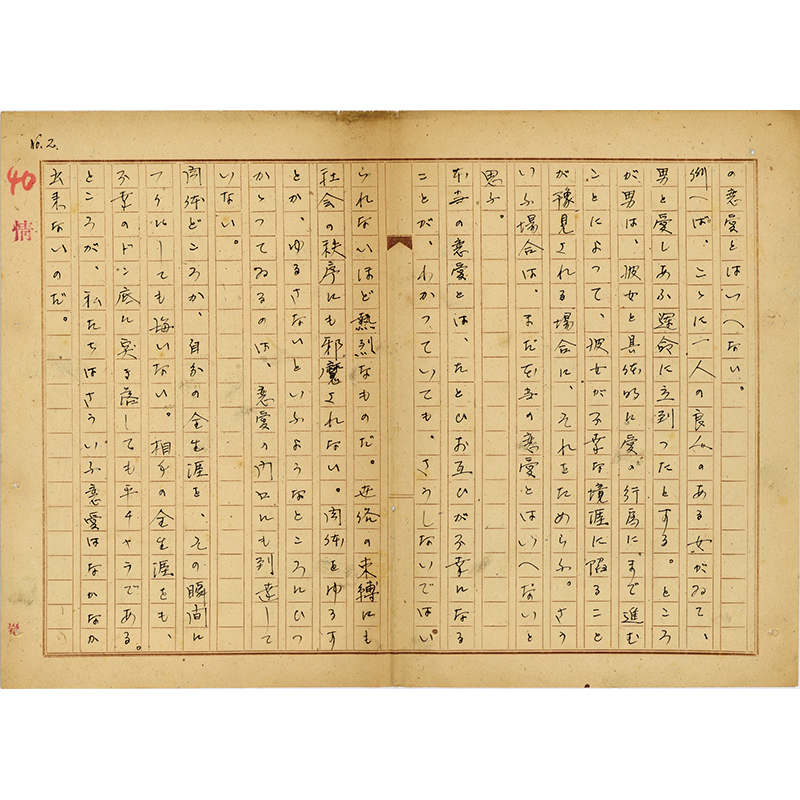 No. 2.
の恋愛とはいへない。
例へば、こゝに一人の良人のある女がゐて、
男と愛しあふ運命に立到つたとする。ところ
が男は、彼女と具体的に愛の行為にまで進む
ことによつて、彼女が不幸な境涯に陥ること
が豫見される場合に、それをためらふ。さう
いふ場合は、まだ本当の恋愛とはいへないと
思ふ。
本当の恋愛とは、たとひお互ひが不幸になる
ことが、わかつていても、さうしないではい
られないほど熱烈なものだ。世俗の束縛にも
社会の秩序にも邪魔されない。肉体をゆるす
とか、ゆるさないといふようなところにひつ
かゝつてゐるのは、恋愛の門口にも到達して
いない。
肉体どころか、自分の全生涯を、その瞬間に
フイにしても悔いない。相手の全生涯をも、
不幸のドン底に突き落しても平チヤラである。
ところが、私たちはさういふ恋愛はなかなか
出来ないのだ。
40
情